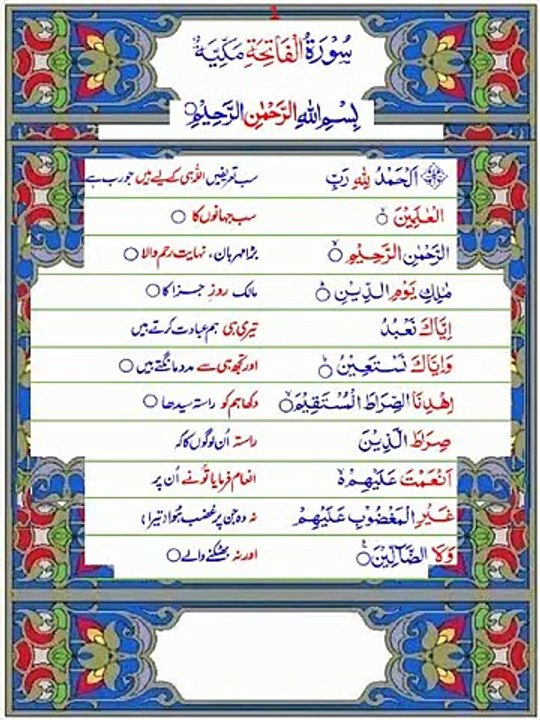 1
سُوْرَةُ الْفَاتِحَةِ مَکِّیَّةٌ
بِسْمِ اللهِ الرَّحْمٰنِ الرَّحِیْمِ
اَلْحَمْدُ لِلّٰهِ رَبِّ سب تعریفیں اللہ ہی کے لیے ہیں جو رب ہے
الْعٰلَمِیْنَ سب جہانوں کا
الرَّحْمٰنِ الرَّحِیْمِ بڑا مہربان، نہایت رحم والا
مٰلِكِ یَوْمِ الدِّیْنِ مالک روزِ جزا کا
اِیَّاكَ نَعْبُدُ تیری ہی ہم عبادت کرتے ہیں
وَاِیَّاكَ نَسْتَعِیْنُ اور تجھ ہی سے مدد مانگتے ہیں
اِهْدِنَا الصِّرَاطَ الْمُسْتَقِیْمَ دکھا ہم کو راستہ سیدھا
صِرَاطَ الَّذِیْنَ راستہ اُن لوگوں کا کہ
اَنْعَمْتَ عَلَیْهِمْ انعام فرمایا تُو نے اُن پر
غَیْرِ الْمَغْضُوْبِ عَلَیْهِمْ نہ وہ جن پر غضب ہُوا تیرا،
وَلَا الضَّآلِّیْنَ اور نہ بھٹکنے والے